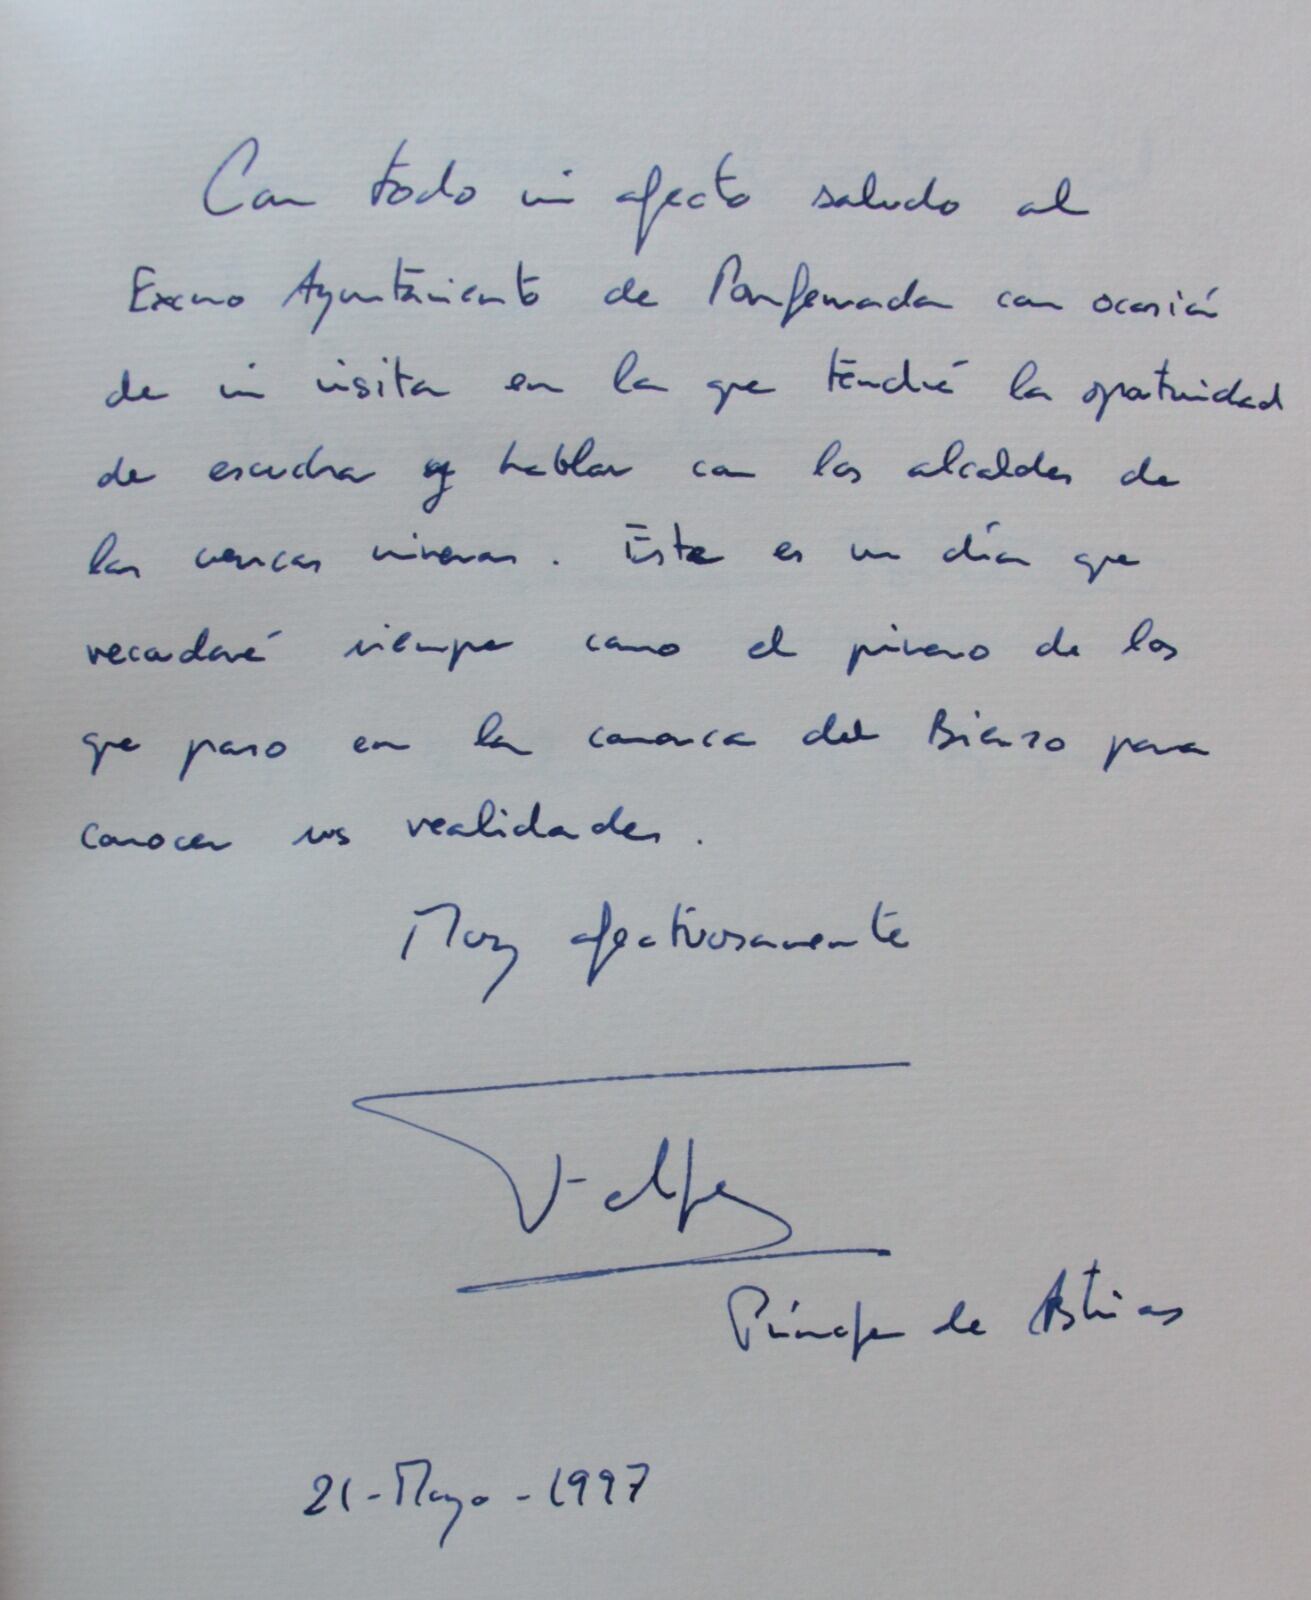 Con todo mi afecto saludo al
Excmo Ayuntamiento de Ponferrada con ocasión
de mi visita en la que tendré la oportunidad
de escuchar y hablar con los alcaldes de
las cuencas mineras. Este es un día que
recordaré siempre como el primero de los
que paso en la comarca del Bierzo para
conocer sus realidades.
Muy afectuosamente
Felipe
Príncipe de Asturias
21-Mayo-1997